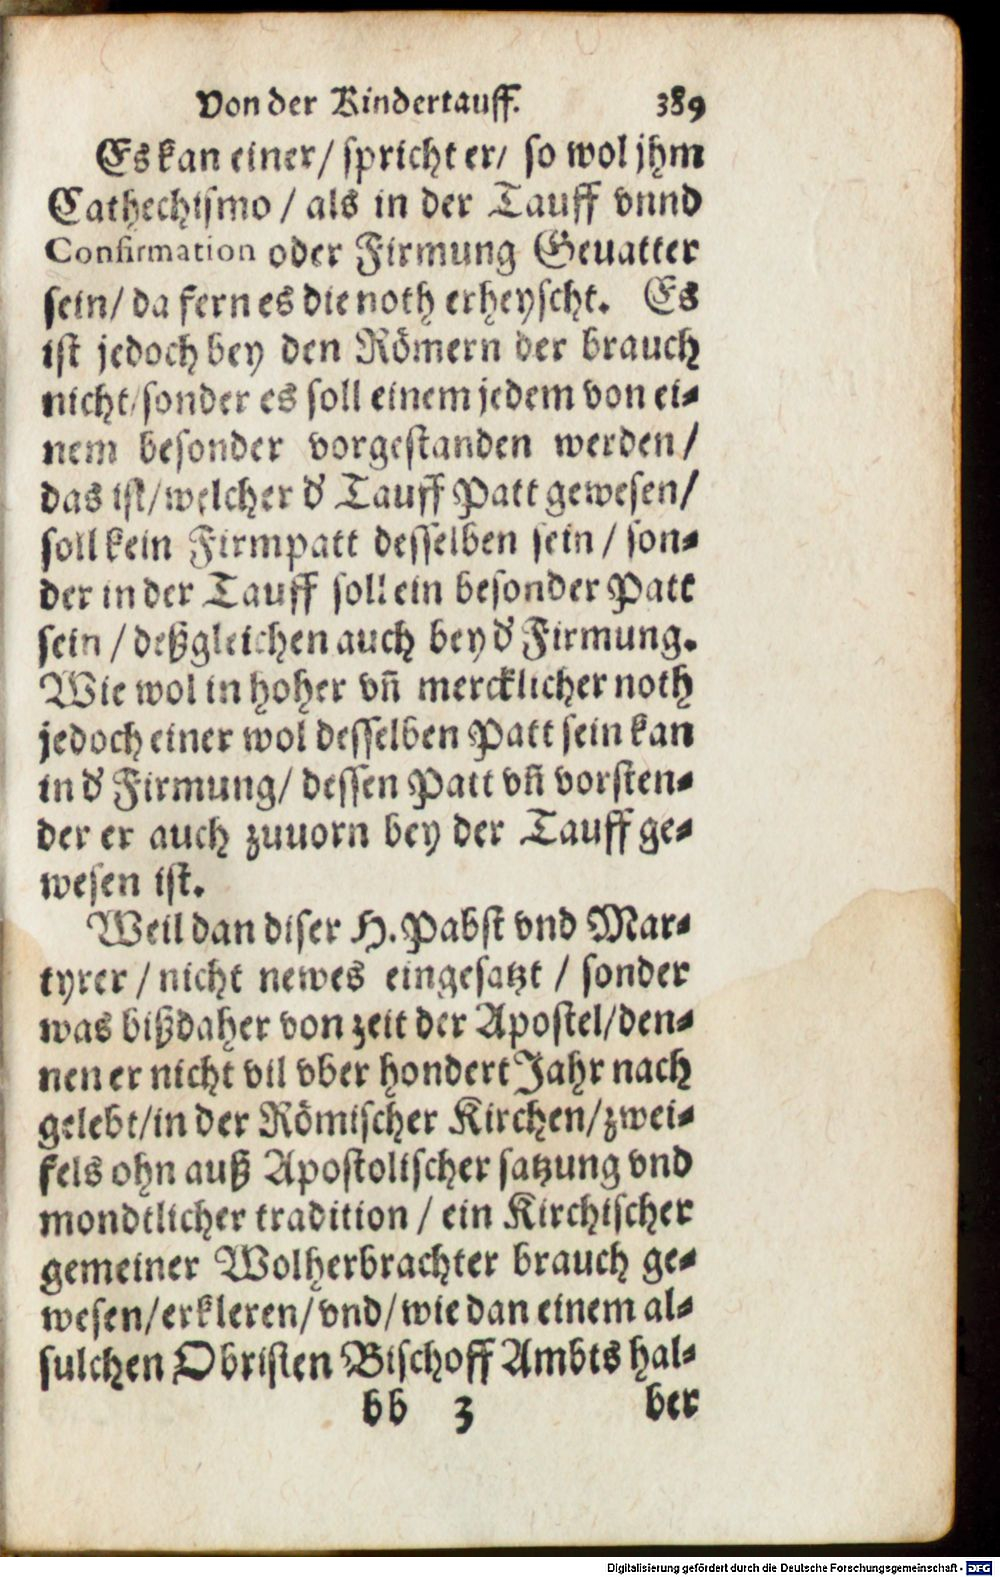 Von der Kindertauff. 389
Es kan einer/ spricht er/ so wol jhm
Cathechismo / als in der Tauff vnnd
Confirmation oder Firmung Gevatter
sein/ da fern es die noth erheyscht. Es
ist jedoch bey den Römern der brauch
nicht/sonder es soll einem jedem von ei-
nem besonder vorgestanden werden/
das ist/welcher d' Tauff Patt gewesen/
soll kein Firmpatt desselben sein / son-
der in der Tauff soll ein besonder Patt
sein / deßgleichen auch bey d' Firmung.
Wie wol in hoher vñ mercklicher noth
jedoch einer wol desselben Patt sein kan
in d' Firmung/ dessen Patt vñ vorsten-
der er auch zuuorn bey der Tauff ge-
wesen ist.
Weil dan diser H. Pabst vnd Mar-
tyrer / nicht newes eingesatzt / sonder
was bißdaher von zeit der Apostel/den-
nen er nicht vil vber hondert Jahr nach
gelebt/in der Römischer Kirchen/zwei-
fels ohn auß Apostolischer satzung vnd
mondtlicher tradition / ein Kirchischer
gemeiner Wolherbrachter brauch ge-
wesen/erkleren/vnd/wie dan einem al-
sulchen Obristen Bischoff Ambts hal-
bb 3 ber
Digitalisierung gefördert durch die Deutsche Forschungsgemeinschaft - DFG